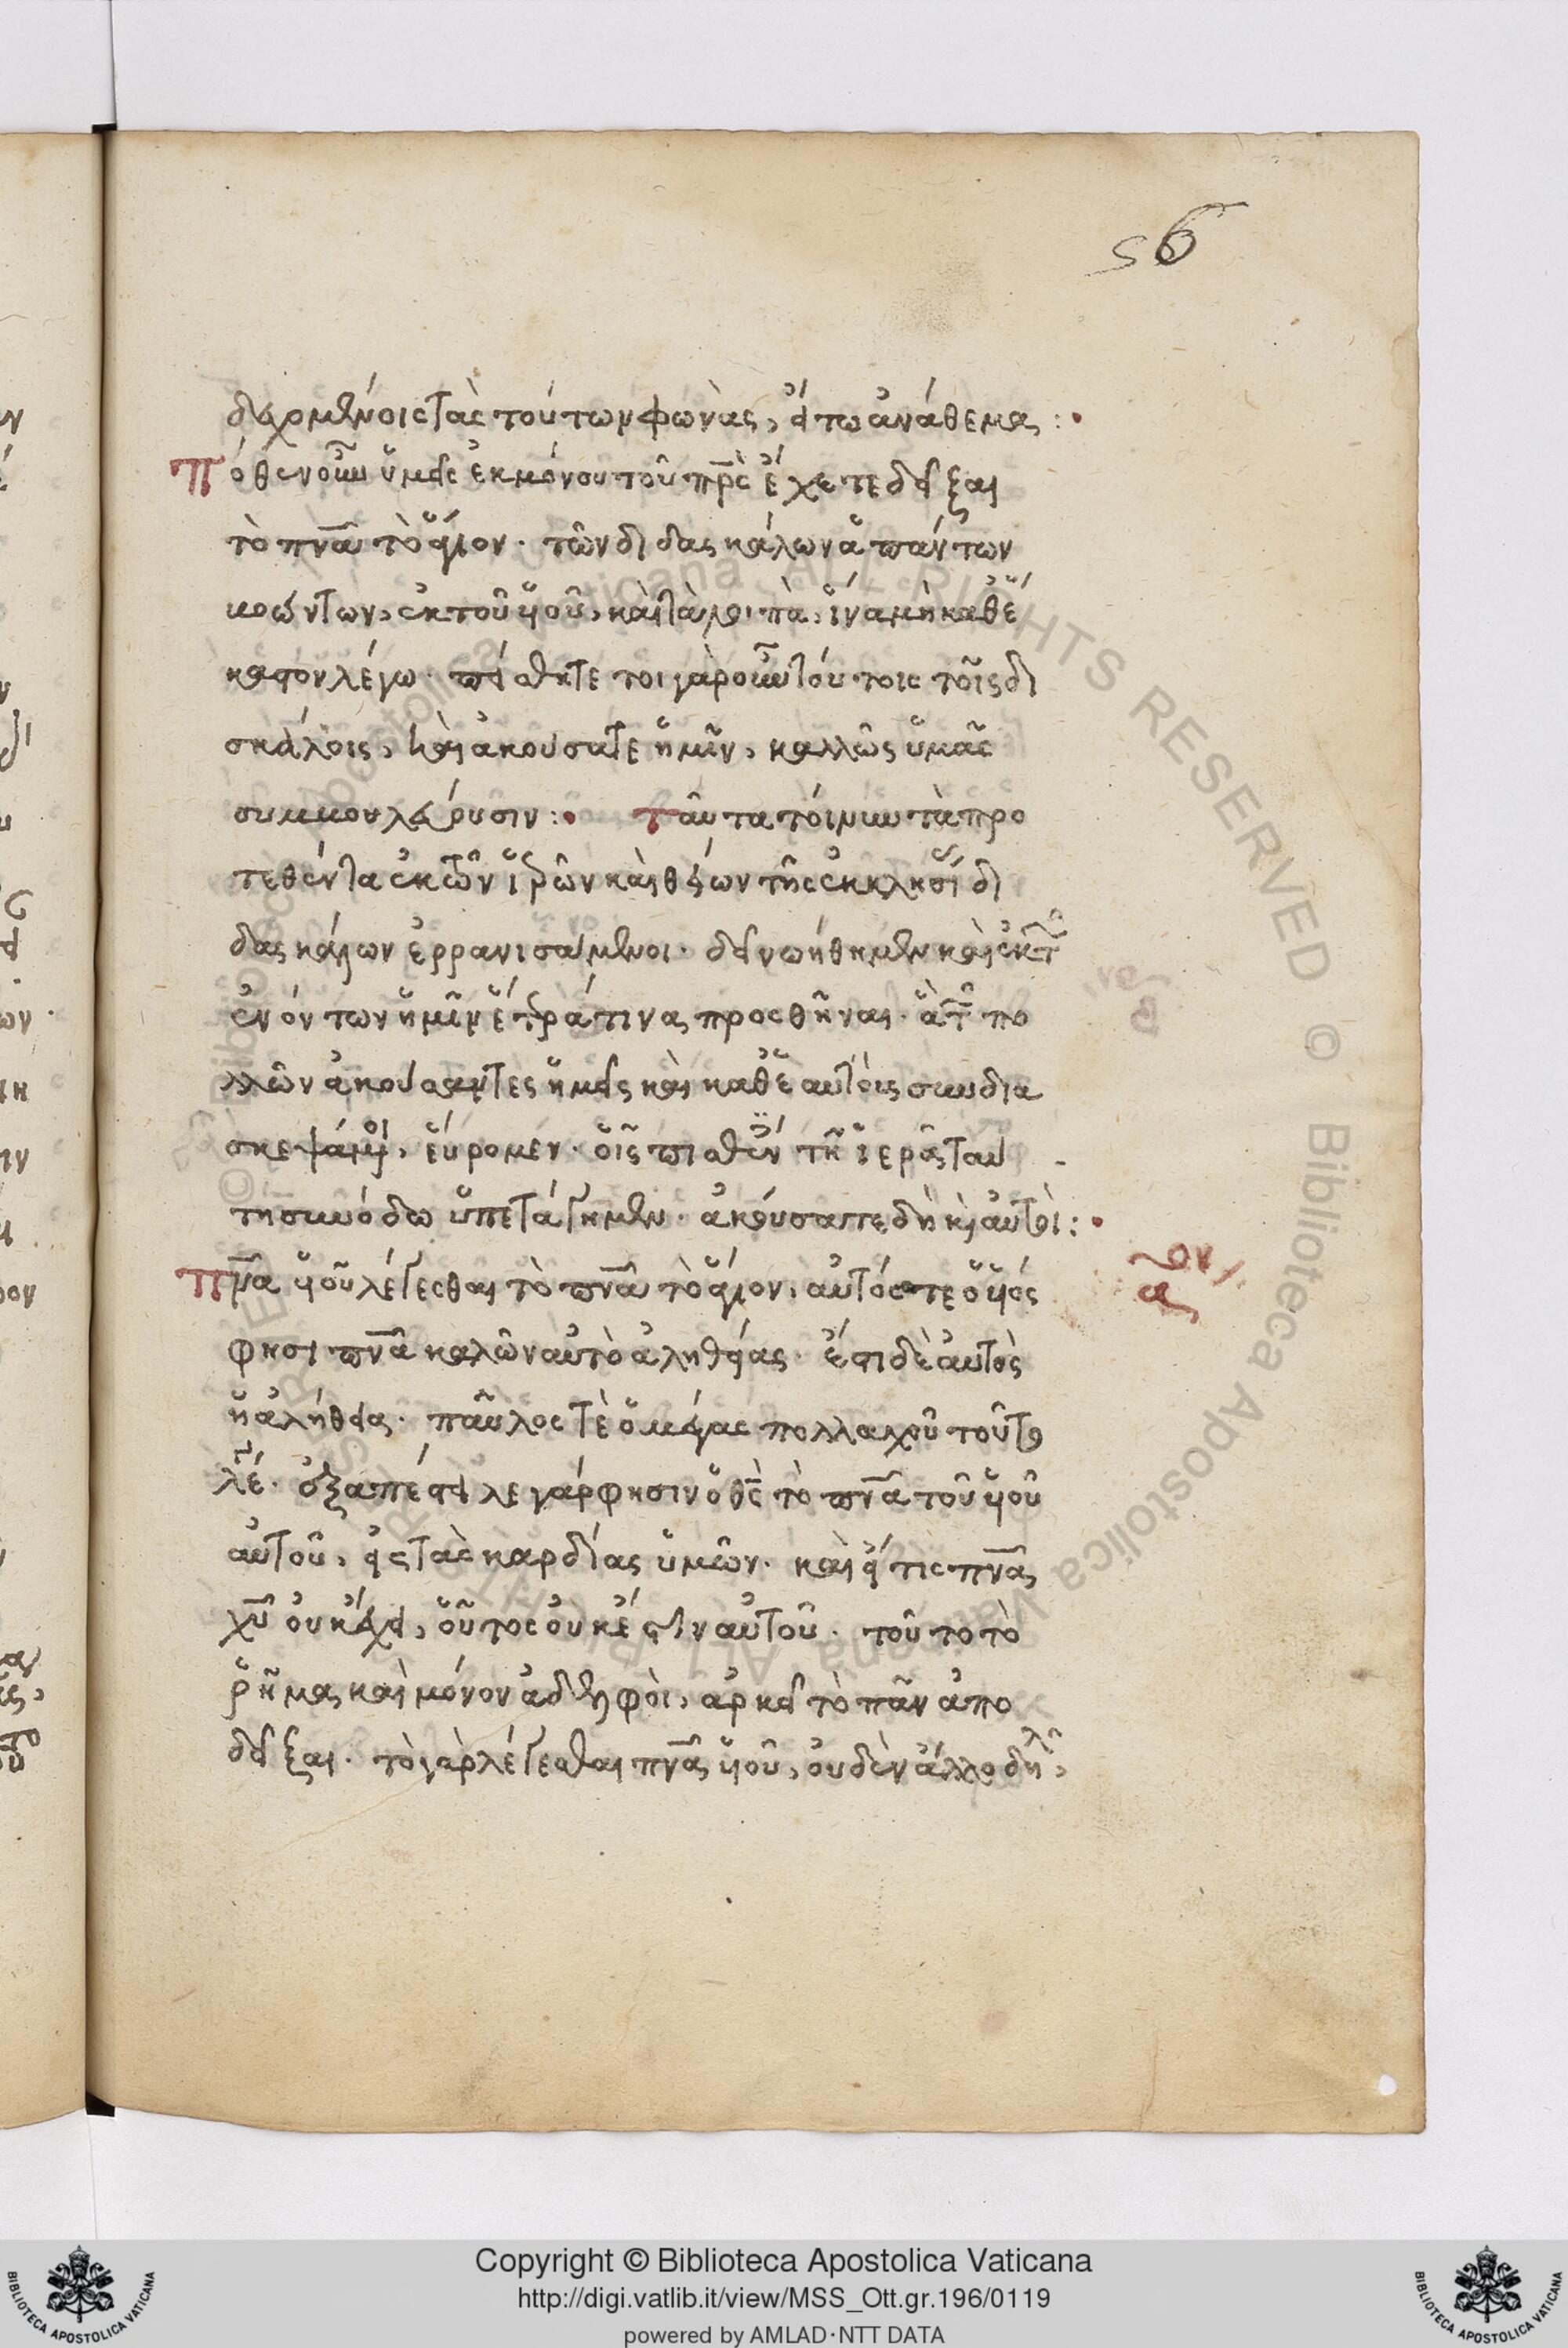 56
δεχομένοις τὰς τούτων φωνὰς, ἔστω ἀνάθεμα :·
Πόθεν οὖν ὑμεῖς ἐκ μόνου τοῦ πρς ἔχετε δεῖξαι
τὸ πνα τὸ ἅγιον · τῶν διδασκάλων ἁπάντων
βοώντων, ἐκ τοῦ υἱοῦ, καὶ τὰ λοιπὰ, ἵνα μὴ καθ' ἕ
καστον λέγω · πείσθητε τοιγαροῦν τούτοις τοῖς δι
σκάλοις, καὶ ἀκούσατε ἡμῖν, καλλῶς ὑμᾶς
συμβουλεύουσιν :· Ταῦτα τοίνυν τὰ προ
τεθέντα ἐκ τῶν ἱερῶν καὶ θείων τῆς ἐκκλησί δι
δασκάλων ἐρρανισάμενοι · δεῖν ὠήθημεν καὶ ἐκ τ
ἐνόντων ἡμῖν ἕτερά τινα προσθῆναι · ἃ τ πο
λλῶν ἀκούσαντες ἡμεῖς καὶ καθ' ἑαυτοῖς συνδια
σκεψάμοι, εὕρομεν · οἷς πισθέν τῆ ἱερᾶ ταύ
τη συνόδω ὑπετάγημεν · ἀκούσατε δὴ κ αὐτοί :·
Πνα υἱοῦ λέγεσθαι τὸ πνα τὸ ἅγιον, αὐτός τε ὁ υἱός
φησι πνα καλῶν αὐτὸ ἀληθείας · ἔστι δὲ αὐτὸς
ἡ ἀλήθεια · παῦλος τὲ ὁ μέγας πολλαχοῦ τοῦτο
λέ · ἐξαπέστειλε γάρ φησιν ὁ θς τὸ πνα τοῦ υἱοῦ
αὐτοῦ, εἰς τὰς καρδίας ὑμῶν · καὶ εἴ τις πνα
χυ οὐκ ἔχει, οὗτος οὐκ ἔστιν αὐτοῦ · τοῦτο τὸ
ῥῆμα καὶ μόνον ἀδελφοὶ, ἀρκεῖ τὸ πᾶν ἀπο
δεῖξαι · τὸ γὰρ λέγεσθαι πνα υἱοῦ, οὐδὲν ἄλλο δηλ,
αον
Copyright © Biblioteca Apostolica Vaticana
http://digi.vatlib.it/view/MSS_Ott.gr.196/0119
powered by AMLAD·NTT DATA
BIBLIOTECA APOSTOLICA VATICANA
BIBLIOTECA APOSTOLICA VATICANA